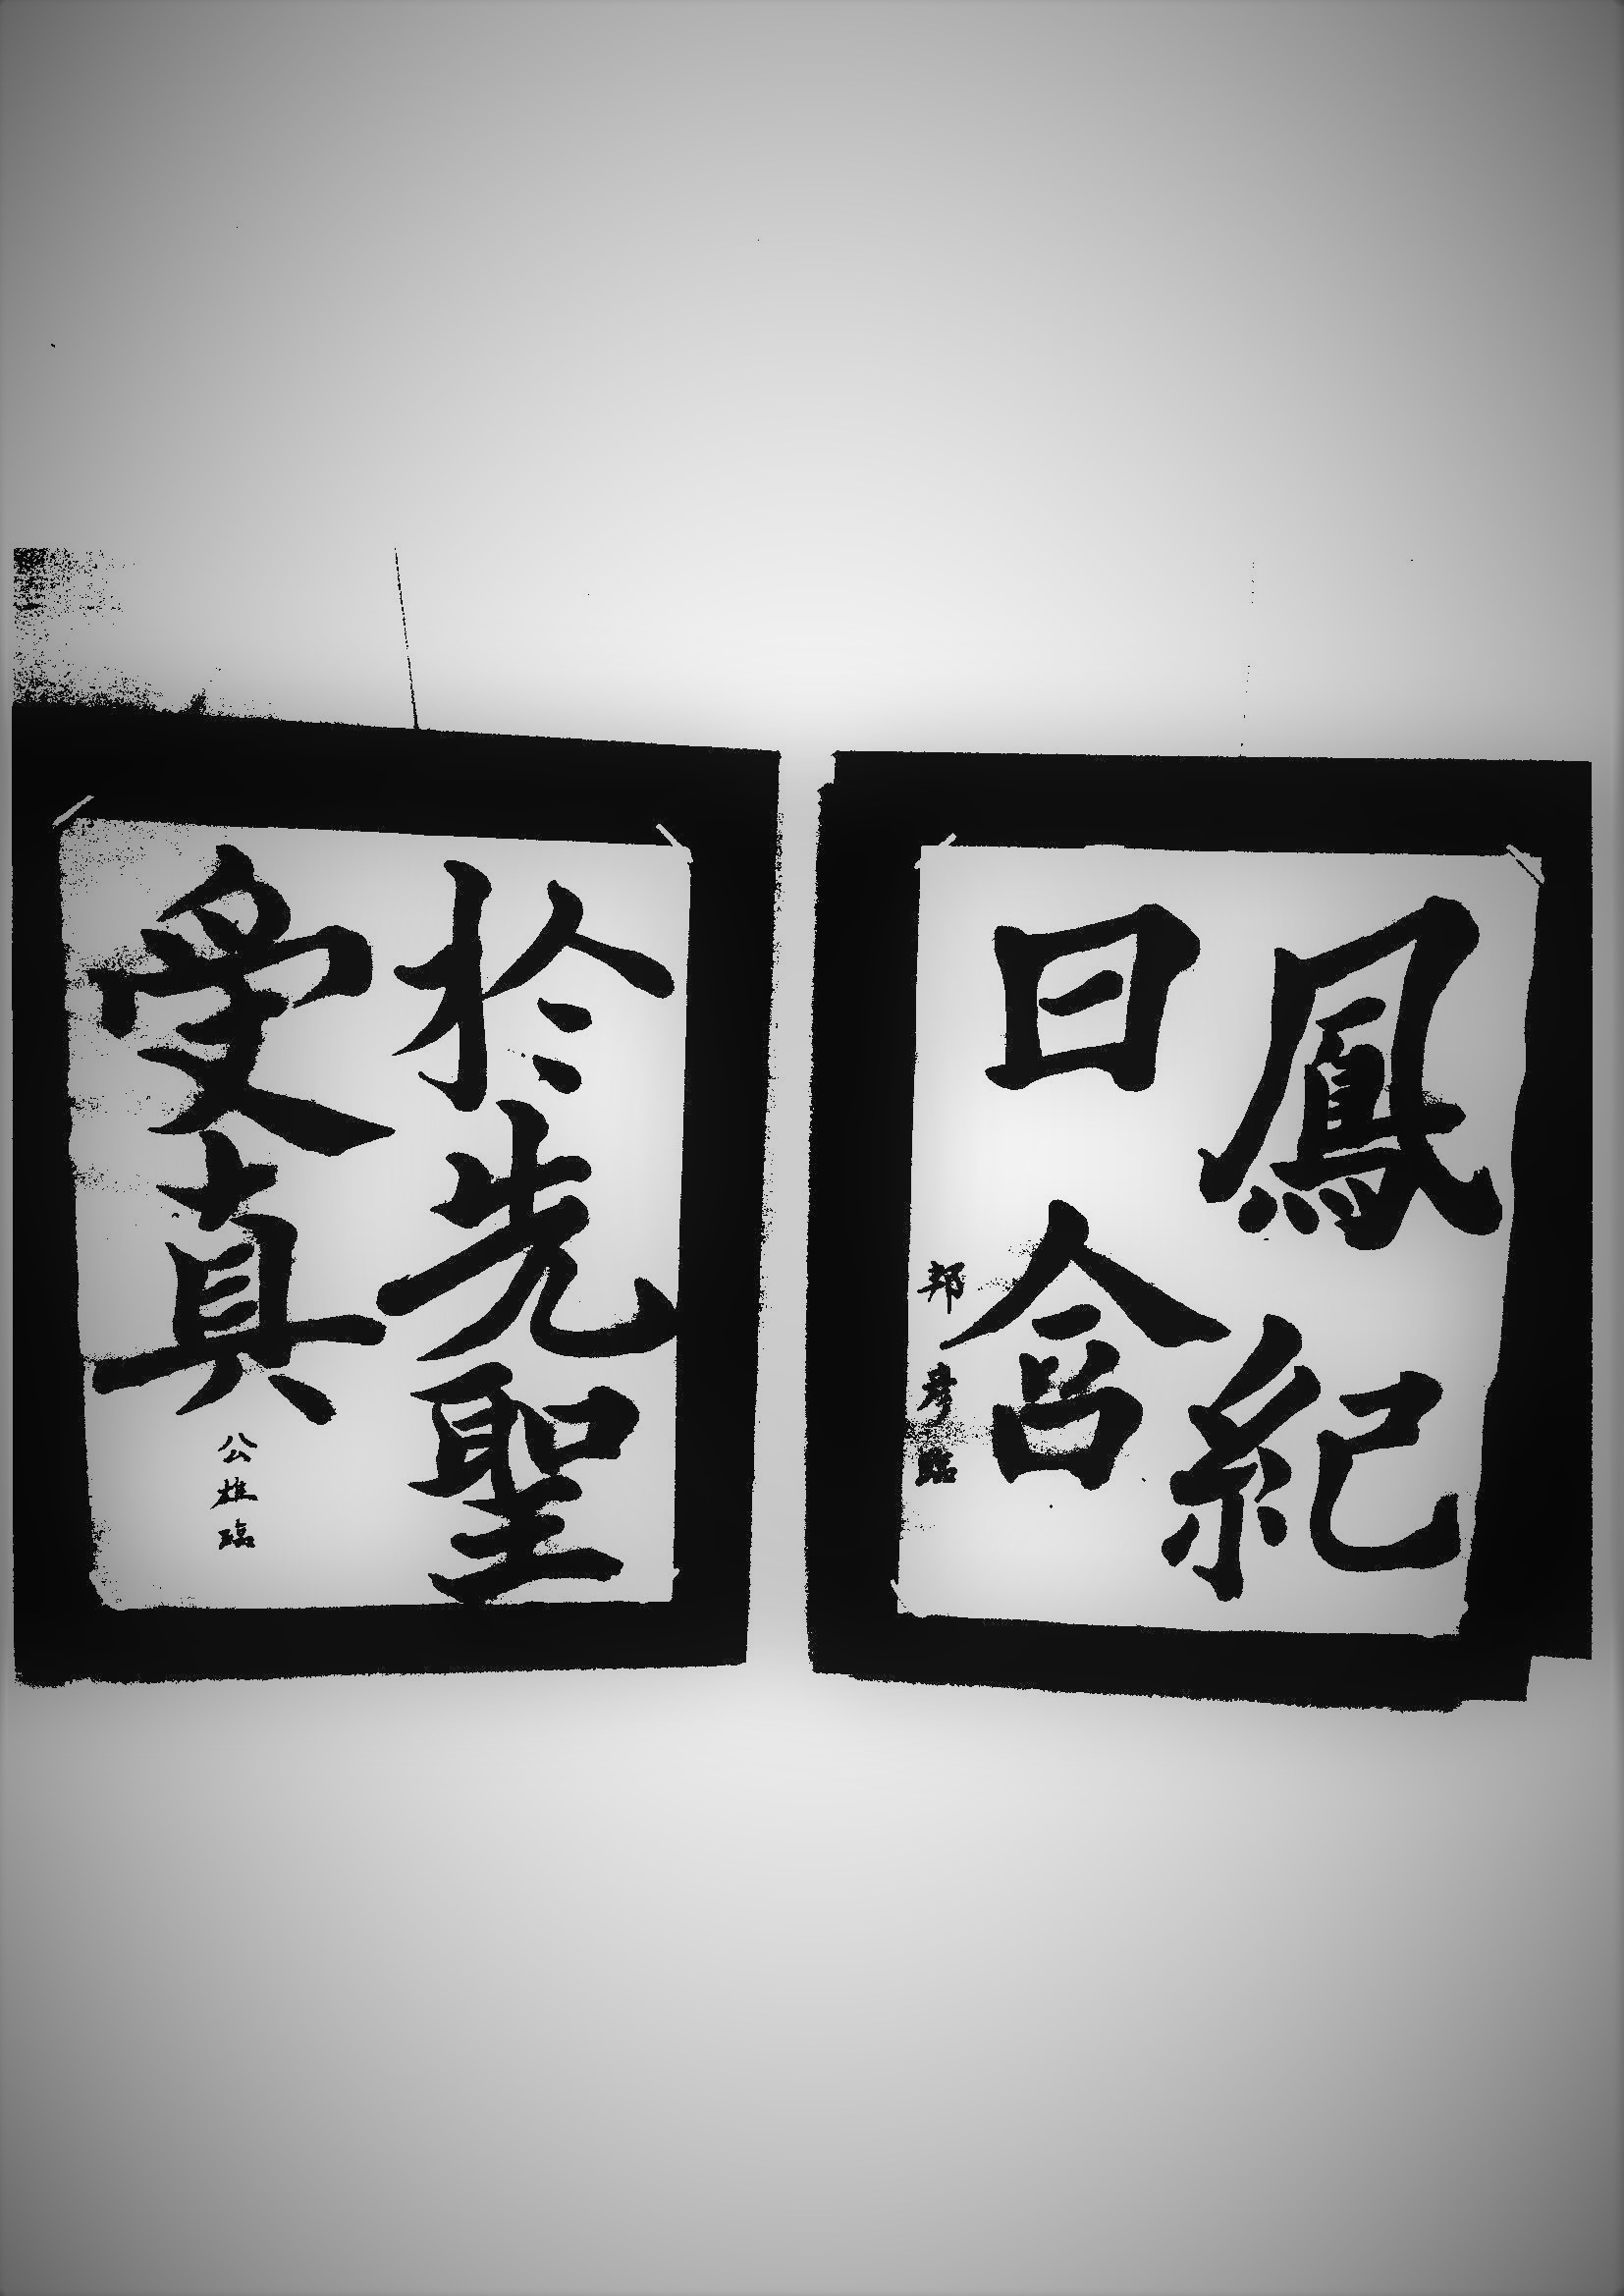 鳳紀
日含
邦彦臨
於先聖
受真
公雄臨